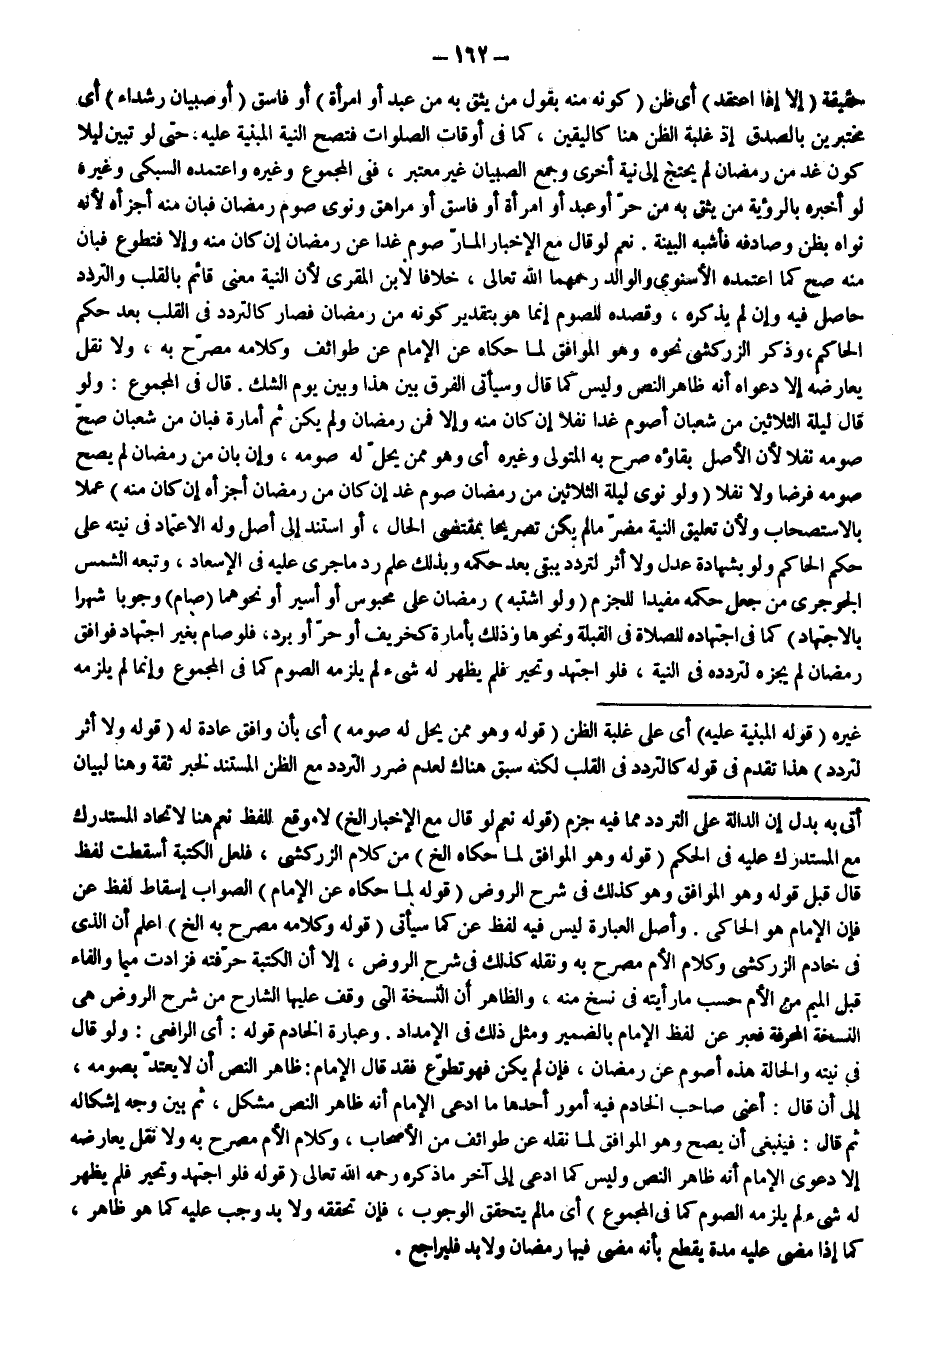 – ١٦٢ –
حقيقة ( إلا إذا اعتقد ) أى ظن ( كونه منه بقول من يثق به من عبد أو امرأة ) أو فاسق ( أو صبيان رشداء ) أى
مختبرين بالصدق إذ غلبة الظن هنا كاليقين ، كما فى أوقات الصلوات فتصح النية المبنية عليه . حتى لو تبين ليلا
كون غد من رمضان لم يحتج إلى نية أخرى وجمع الصبيان غير معتبر ، ففى المجموع وغيره واعتمده السبكى وغيره
لو أخبره بالرؤية من يثق به من حرّ أوعبد أو امرأة أو فاسق أو مراهق ونوى صوم رمضان فبان منه أجزأه لأنه
نواه بظن وصادفه فأشبه البينة . نعم لوقال مع الإخبار المارّ صوم غدا عن رمضان إن كان منه وإلا فتطوع فبان
منه صح كما اعتمده الأسنوى والوالد رحمهما الله تعالى ، خلافا لابن المقرى لأن النية معنى قائم بالقلب والتردّد
حاصل فيه وإن لم يذكره ، وقصده للصوم إنما هو بتقدير كونه من رمضان فصار كالتردد فى القلب بعد حكم
الحاكم ، وذكر الزركشى نحوه وهو الموافق لما حكاه عن الإمام عن طوائف وكلامه مصرّح به ، ولا نقل
يعارضه إلا دعواه أنه ظاهر النص وليس كما قال وسيأتى الفرق بين هذا وبين يوم الشك . قال فى المجموع : ولو
قال ليلة الثلاثين من شعبان أصوم غدا نفلا إن كان منه وإلا فمن رمضان ولم يكن ثم أمارة فبان من شعبان صحّ
صومه نفلا لأن الأصل بقاؤه صرح به المتولى وغيره أى وهو ممن يحلّ له صومه ، وإن بان من رمضان لم يصح
صومه فرضا ولا نفلا ( ولو نوى ليلة الثلاثين من رمضان صوم غد إن كان من رمضان أجزأه إن كان منه ) عملا
بالاستصحاب ولأن تعليق النية مضرّ مالم يكن تصريحا بمقتضى الحال ، أو استند إلى أصل وله الاعتماد فى نيته على
حكم الحاكم ولو بشهادة عدل ولا أثر لتردد يبقى بعد حكمه وبذلك علم رد ماجرى عليه فى الإسعاد ، وتبعه الشمس
الجوجرى من جعل حكمه مفيدا للجزم ( ولو اشتبه ) رمضان على محبوس أو أسير أو نحوهما (صام) وجوبا شهرا
بالاجتهاد ) كما فى اجتهاده للصلاة فى القبلة ونحوها وذلك بأمارة كخريف أو حرّ أو برد ، فلو صام بغير اجتهاد فوافق
رمضان لم يجزه لتردده فى النية ، فلو اجتهد وتحير فلم يظهر له شىء لم يلزمه الصوم كما فى المجموع وإنما لم يلزمه
غيره ( قوله المبنية عليه) أى على غلبة الظن ( قوله وهو ممن يحل له صومه ) أى بأن وافق عادة له ( قوله ولا أثر
لتردد ) هذا تقدم فى قوله كالتردد فى القلب لكنه سبق هناك لعدم ضرر التردد مع الظن المستند لخبر ثقة وهنا لبيان
أتى به بدل إن الدالة على التردد مما فيه جزم (قوله نعم لو قال مع الإخبار الخ) لاموقع للفظ نعم هنا لاتحاد المستدرك
مع المستدرك عليه فى الحكم ( قوله وهو الموافق لما حكاه الخ ) من كلام الزركشى ، فلعل الكتبة أسقطت لفظ
قال قبل قوله وهو الموافق وهو كذلك فى شرح الروض ( قوله لما حكاه عن الإمام ) الصواب إسقاط لفظ عن
فإن الإمام هو الحاكى . وأصل العبارة ليس فيه لفظ عن كما سيأتى ( قوله وكلامه مصرح به الخ ) اعلم أن الذى
فى خادم الزركشى وكلام الأم مصرح به ونقله كذلك فى شرح الروض ، إلا أن الكتبة حرّفته فزادت ميما والفاء
قبل الميم من الأم حسب مارأيته فى نسخ منه ، والظاهر أن النسخة التى وقف عليها الشارح من شرح الروض هى
النسخة المحرفة فعبر عن لفظ الإمام بالضمير ومثل ذلك فى الإمداد . وعبارة الخادم قوله : أى الرافعى : ولو قال
فى نيته والحالة هذه أصوم عن رمضان ، فإن لم يكن فهو تطوّع فقد قال الإمام : ظاهر النص أن لايعتدّ بصومه ،
إلى أن قال : أعنى صاحب الخادم فيه أمور أحدها ما ادعى الإمام أنه ظاهر النص مشكل ، ثم بين وجه إشكاله
ثم قال : فينبغى أن يصح وهو الموافق لما نقله عن طوائف من الأصحاب ، وكلام الأم مصرح به ولا نقل يعارضه
إلا دعوى الإمام أنه ظاهر النص وليس كما ادعى إلى آخر ماذكره رحمه الله تعالى ( قوله فلو اجتهد وتحير فلم يظهر
له شىء لم يلزمه الصوم كما فى المجموع ) أى مالم يتحقق الوجوب ، فإن تحققه ولا بد وجب عليه كما هو ظاهر ،
كما إذا مضى عليه مدة يقطع بأنه مضى فيها رمضان ولابد فليراجع .